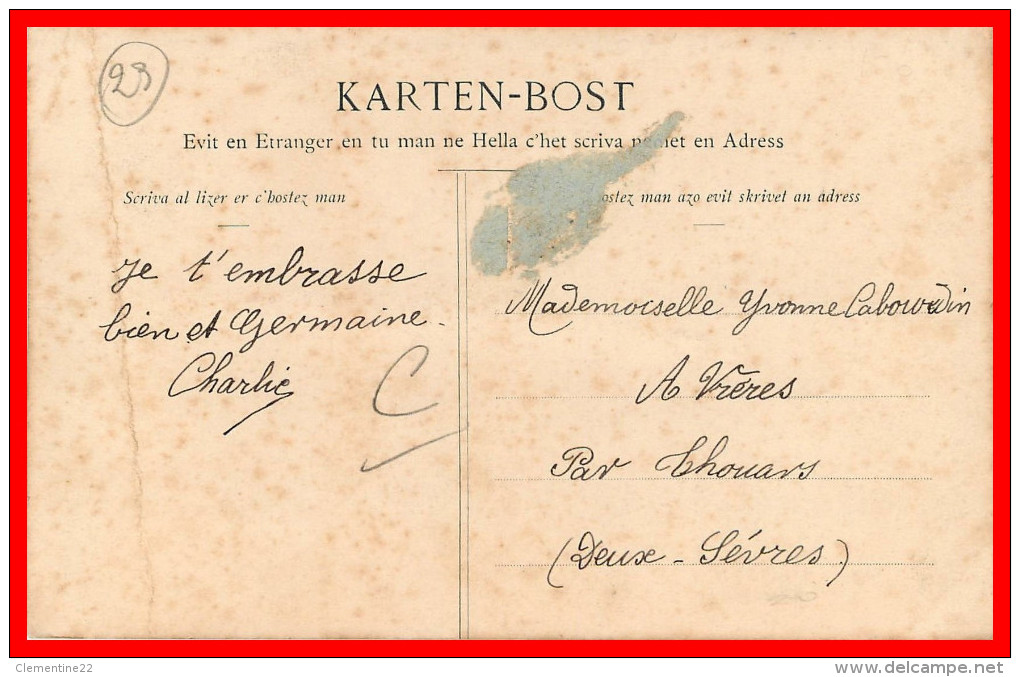 23
KARTEN-BOST
Evit en Etranger en tu man ne Hella c'het scriva nemet en Adress
Scriva al lizer er c'hostez man
man azo evit skrivet an adress
Je t'embrasse
bien et Germaine.
Charlie
C
Mademoiselle Yvonne
A
Par Thouars
(Deux-Sèvres)
Clementine22
www.delcampe.net